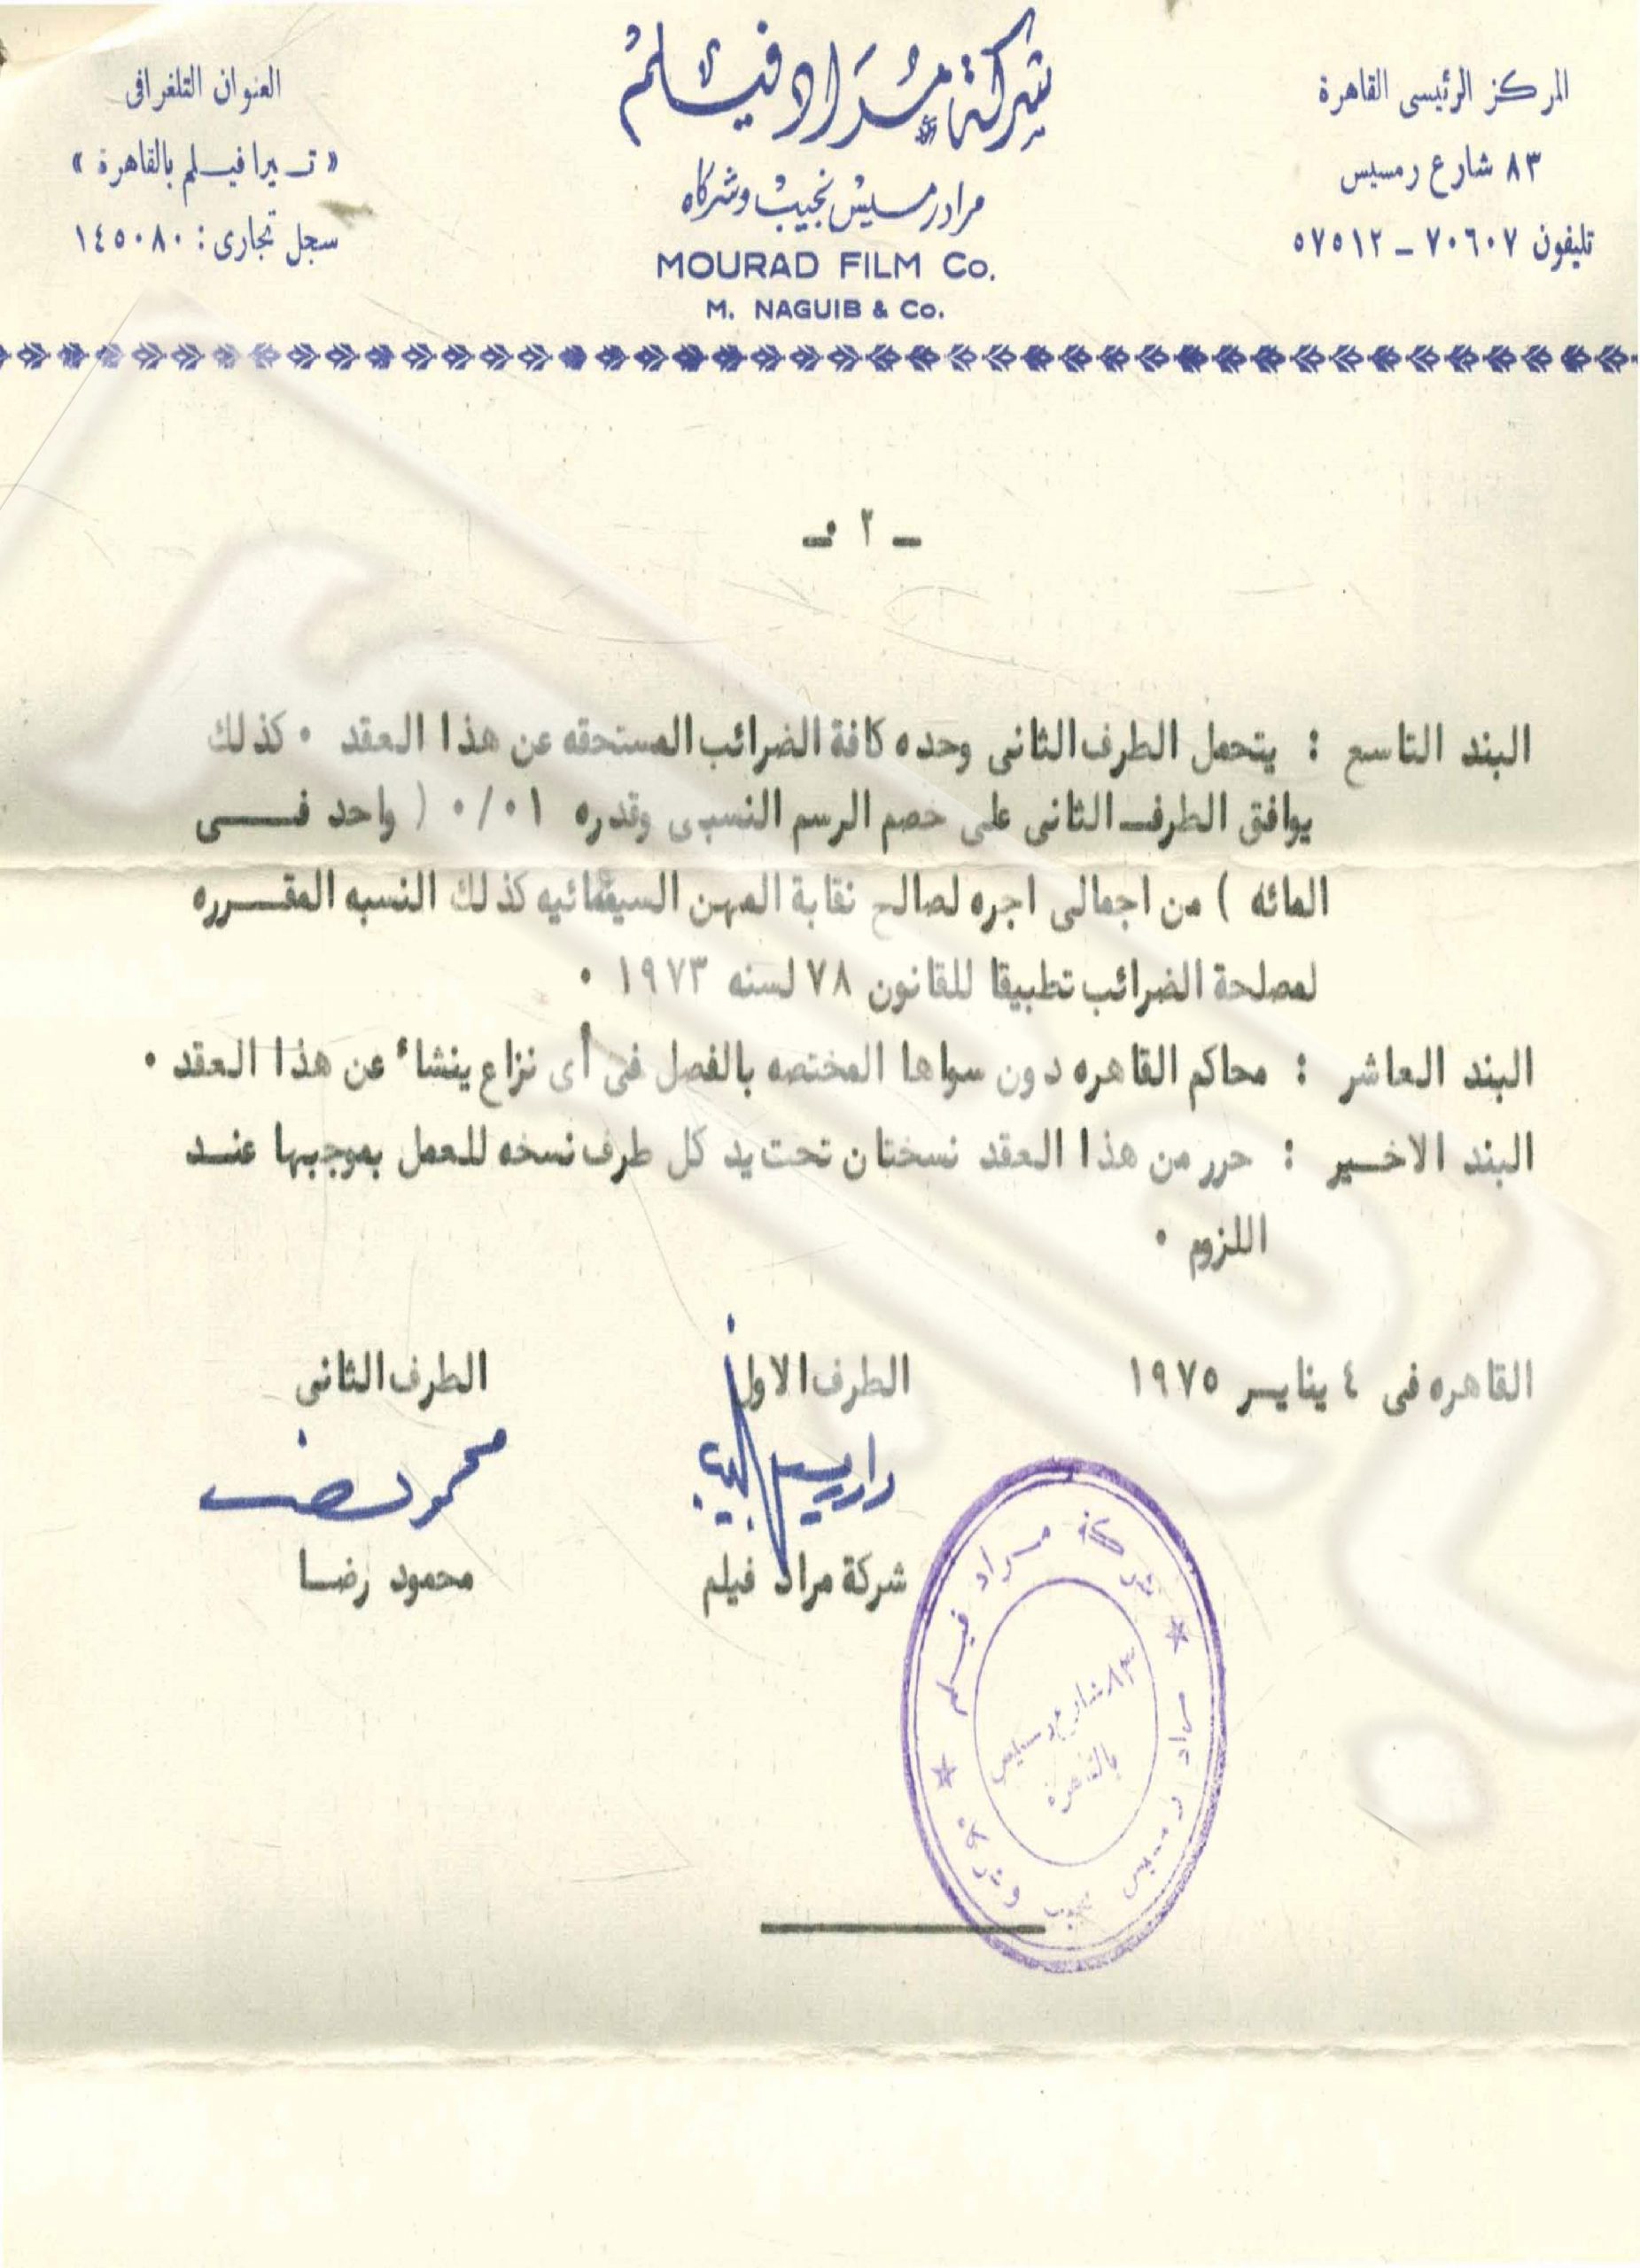 المركز الرئيسى القاهرة
٨٣ شارع رمسيس
تليفون ٧٠٦٠٧ - ٥٧٥١٢
شركة مراد فيلم
مراد رمسيس نجيب وشركاه
MOURAD FILM Co.
M. NAGUIB & Co.
العنوان التلغرافى
« تـيرا فيـلم بالقاهرة »
سجل تجارى : ١٤٥٠٨٠
ـ ٢ ـ
البند التاسع : يتحمل الطرف الثانى وحده كافة الضرائب المستحقه عن هذا العقد ٠ كذلك
يوافق الطرف الثانى على خصم الرسم النسبى وقدره ٠/٠١ ( واحد فــى
المائه ) من اجمالى اجره لصالح نقابة المهن السينمائيه كذلك النسبه المقــرره
لمصلحة الضرائب تطبيقا للقانون ٧٨ لسنه ١٩٧٣ ٠
البند العاشر : محاكم القاهره دون سواها المختصه بالفصل فى أى نزاع ينشاء عن هذا العقد ٠
البند الاخـير : حرر من هذا العقد نسختان تحت يد كل طرف نسخه للعمل بموجبها عنـد
اللزوم ٠
القاهره فى ٤ ينايـر ١٩٧٥
الطرف الاول
الطرف الثانى
محمود رضا
شركة مراد فيلم
محمود رضـا
شركة مراد فيلم
٨٣ شارع رمسيس
بالقاهرة
مراد رمسيس نجيب وشركاه